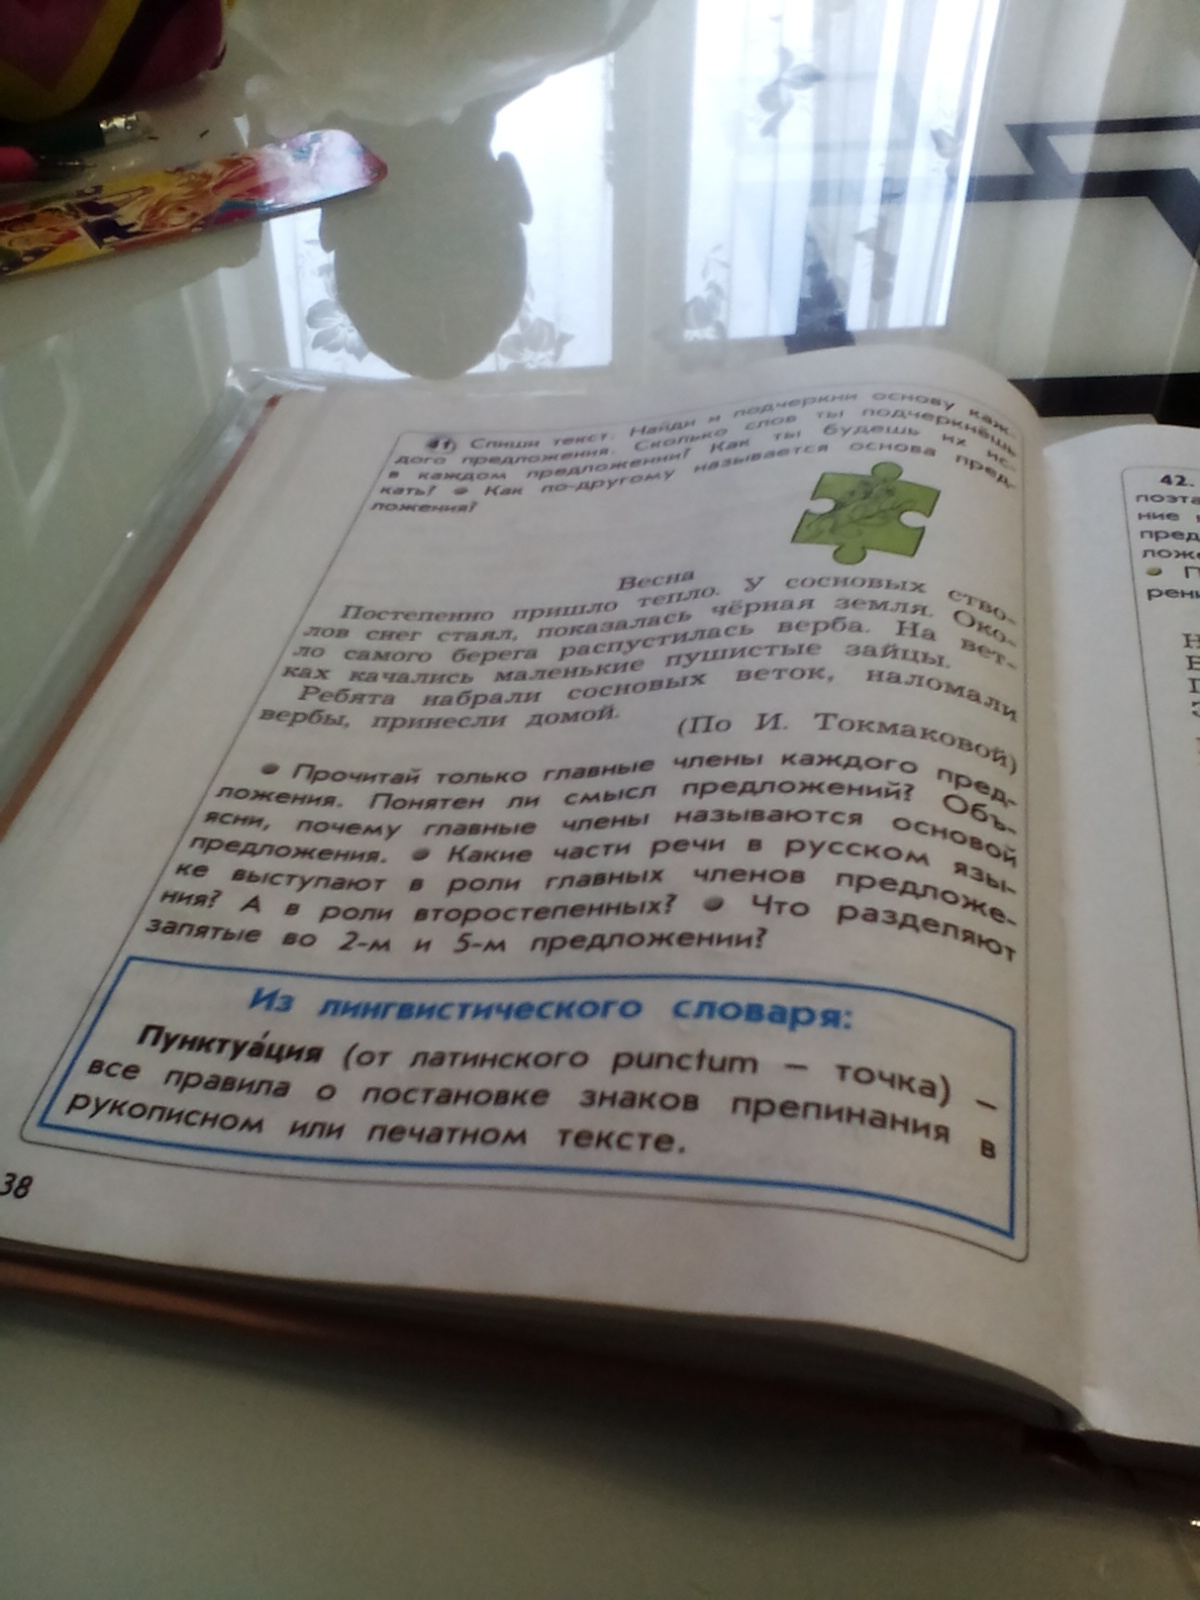 41 Спиши текст. Найди и подчеркни основу каж-
дого предложения. Сколько слов ты подчеркнёшь
в каждом предложении? Как ты будешь их ис-
кать? ● Как по-другому называется основа пред-
ложения?
Весна
Постепенно пришло тепло. У сосновых ство-
лов снег стаял, показалась чёрная земля. Око-
ло самого берега распустилась верба. На вет-
ках качались маленькие пушистые зайцы.
Ребята набрали сосновых веток, наломали
вербы, принесли домой.
(По И. Токмаковой)
● Прочитай только главные члены каждого пред-
ложения. Понятен ли смысл предложений? Объ-
ясни, почему главные члены называются основой
предложения. ● Какие части речи в русском язы-
ке выступают в роли главных членов предложе-
ния? А в роли второстепенных? ● Что разделяют
запятые во 2-м и 5-м предложении?
Из лингвистического словаря:
Пунктуа́ция (от латинского punctum – точка) –
все правила о постановке знаков препинания в
рукописном или печатном тексте.
38
42.
поэта
ние
пред
лож
● П
рени